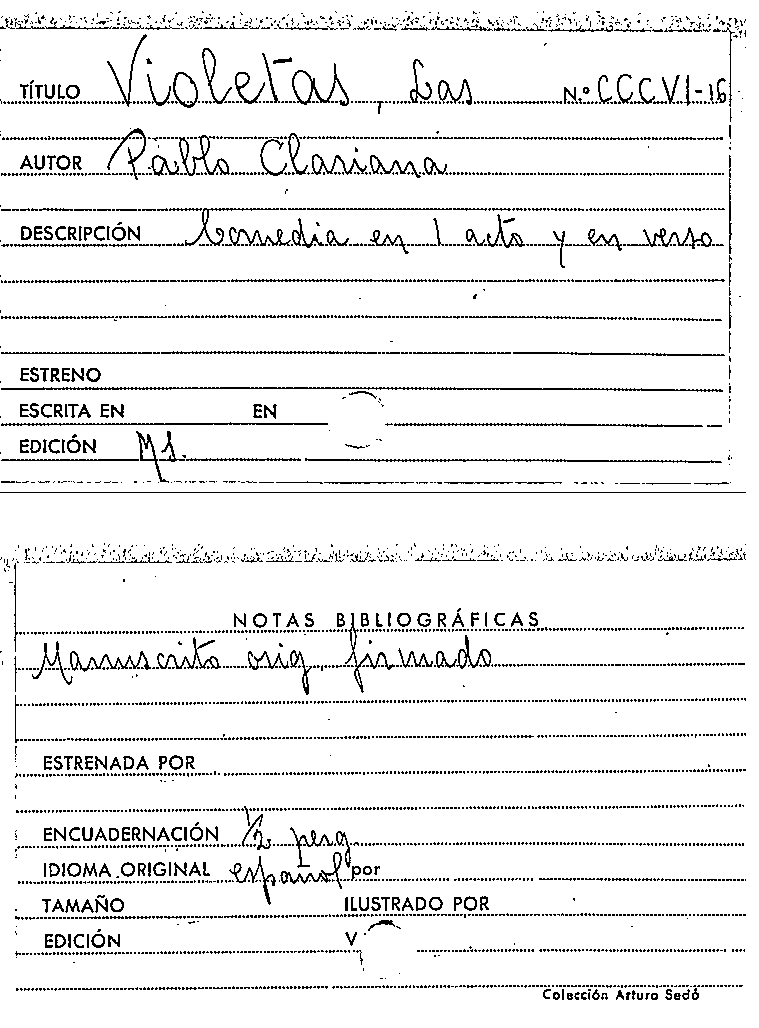 TÍTULO Violetas, Las N.º CCCVI-16
AUTOR Pablo Clariana
DESCRIPCIÓN Comedia en 1 acto y en verso
ESTRENO
ESCRITA EN EN
EDICIÓN Ms.
NOTAS BIBLIOGRÁFICAS
Manuscrito orig. firmado
ESTRENADA POR
ENCUADERNACIÓN 1/2 perg.
IDIOMA ORIGINAL español por
TAMAÑO ILUSTRADO POR
EDICIÓN V
Colección Arturo Sedó